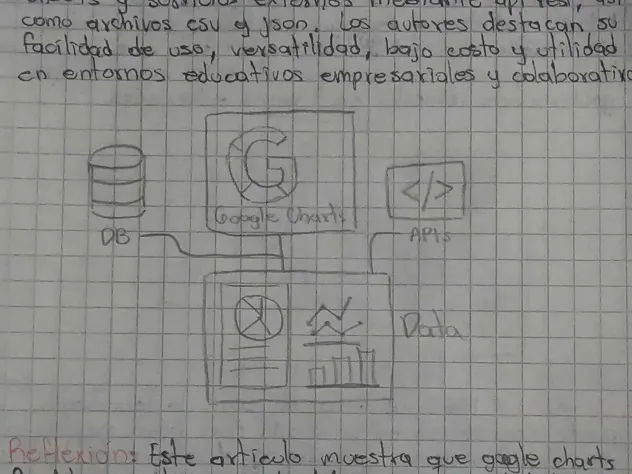 externos mediante api rest,
como archivos csv y json. Los autores destacan su
facilidad de uso, versatilidad, bajo costo y utilidad
en entornos educativos empresariales y colaborativo
G
Google Charts
</>
DB
APIs
Data
Reflexión: Este artículo muestra que google charts